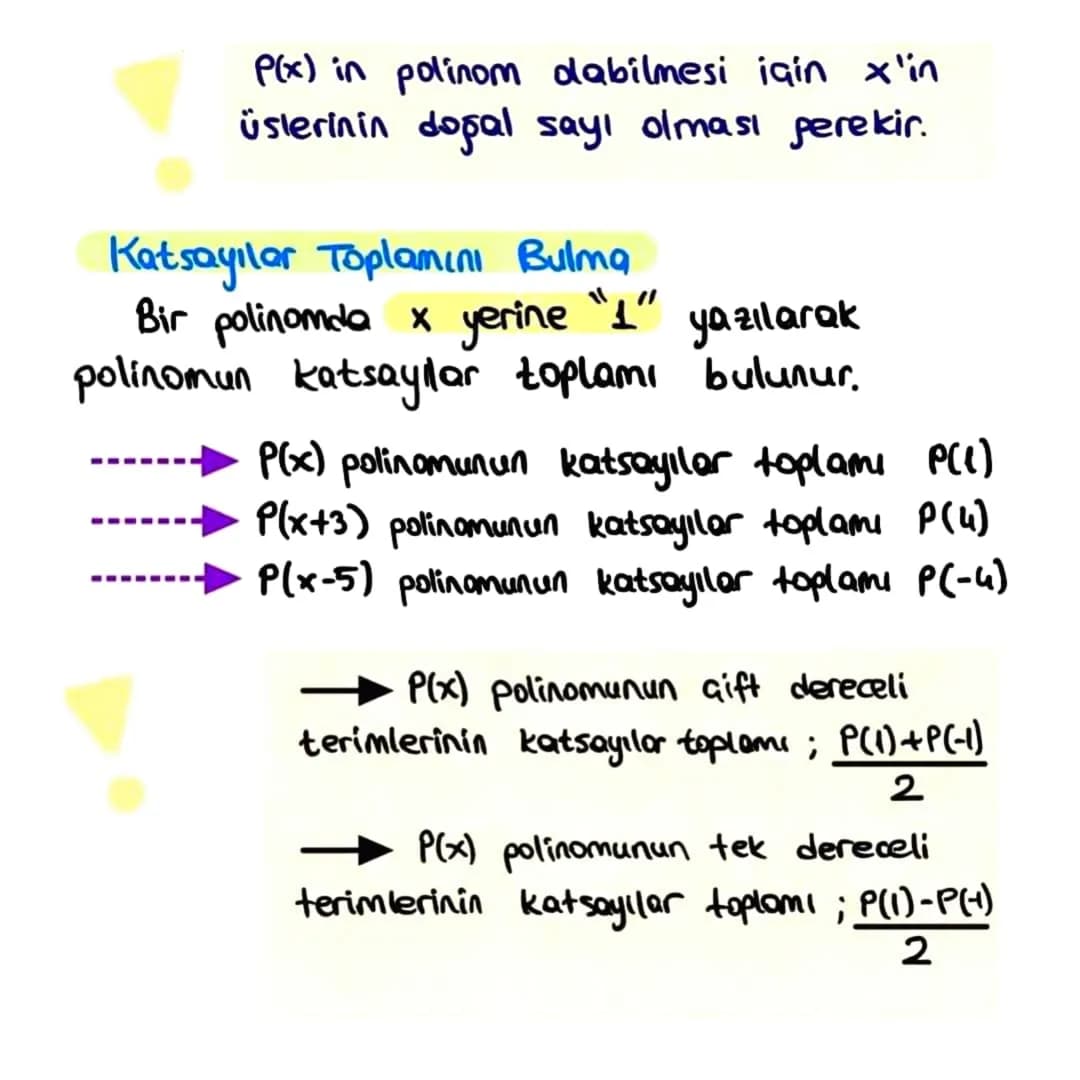 P(x) in polinom olabilmesi için x'in
üslerinin doğal sayı olması gerekir.
Katsayılar Toplamını Bulma
Bir polinomda x yerine "1" yazılarak
polinomun katsayılar toplamı bulunur.
P(x) polinomunun katsayılar toplamı P(1)
P(x+3) polinomunun katsayılar toplamı P(4)
P(x-5) polinomunun katsayılar toplamı P(-4)
→ P(x) polinomunun çift dereceli
terimlerinin katsayılar toplamı ; P(1)+P(-1)
2
→ P(x) polinomunun tek dereceli
terimlerinin katsayılar toplamı ; P(1)-P(-1)
2